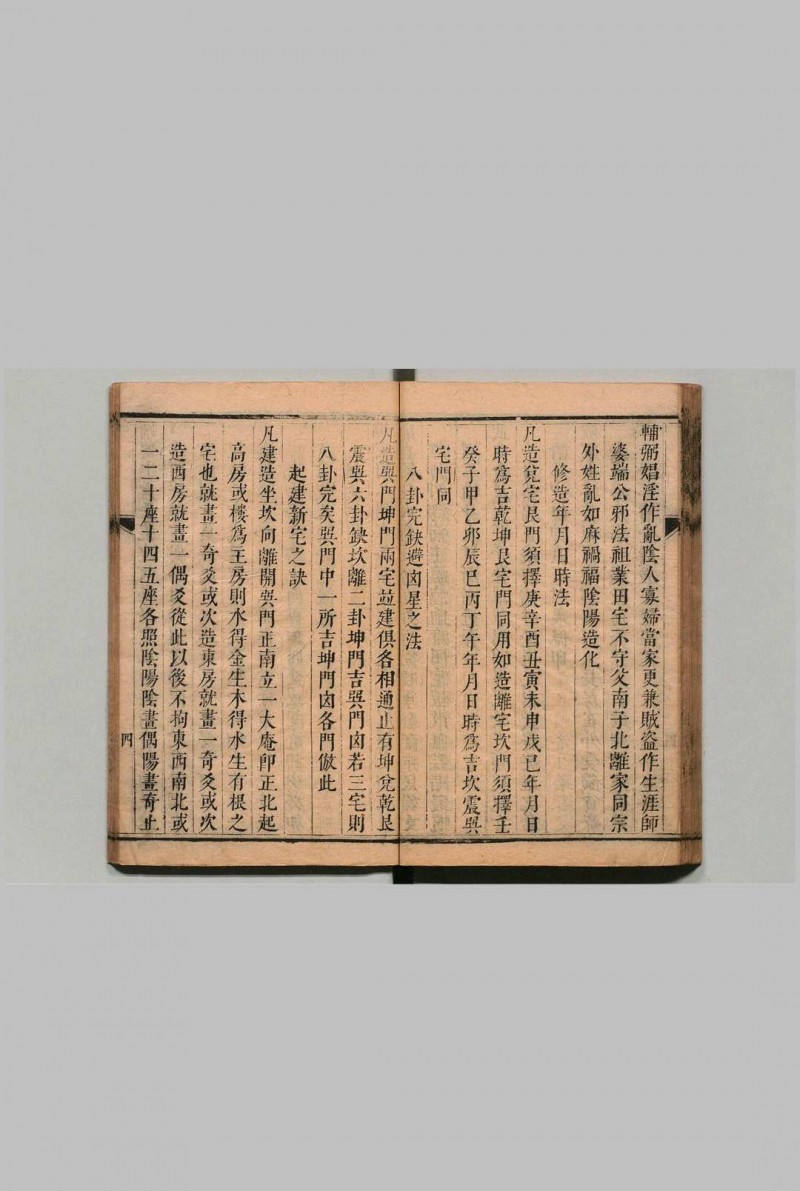 輔弼娼淫作亂陰人寡婦當家更兼賊盗作生涯師
婆端公邪法祖業田宅不守父南子北離家同宗
外姓亂如麻禍福陰陽造化
修造年月日時法
凡造兌宅艮門須擇庚辛酉丑寅未申戌巳年月日
時為吉乾坤艮宅門同用如造離宅坎門須擇壬
癸子甲乙卯辰巳丙丁午年月日時為吉坎震巽
宅門同
八卦完缺避凶星之法
凡造巽門坤門兩宅並建俱各相通止有坤兌乾艮
震巽六卦缺坎離二卦坤門吉巽門凶若三宅則
八卦完矣巽門中一所吉坤門凶各門倣此
起建新宅之訣
凡建造坐坎向離開巽門正南立一大庵卽正北起
高房或樓為王房則水得金生木得水生有根之
宅也就畫一奇爻或次造東房就畫一奇爻或次
造西房就畫一偶爻從此以後不拘東西南北或
一二十座十四五座各照陰陽陰畫偶陽畫奇止
四